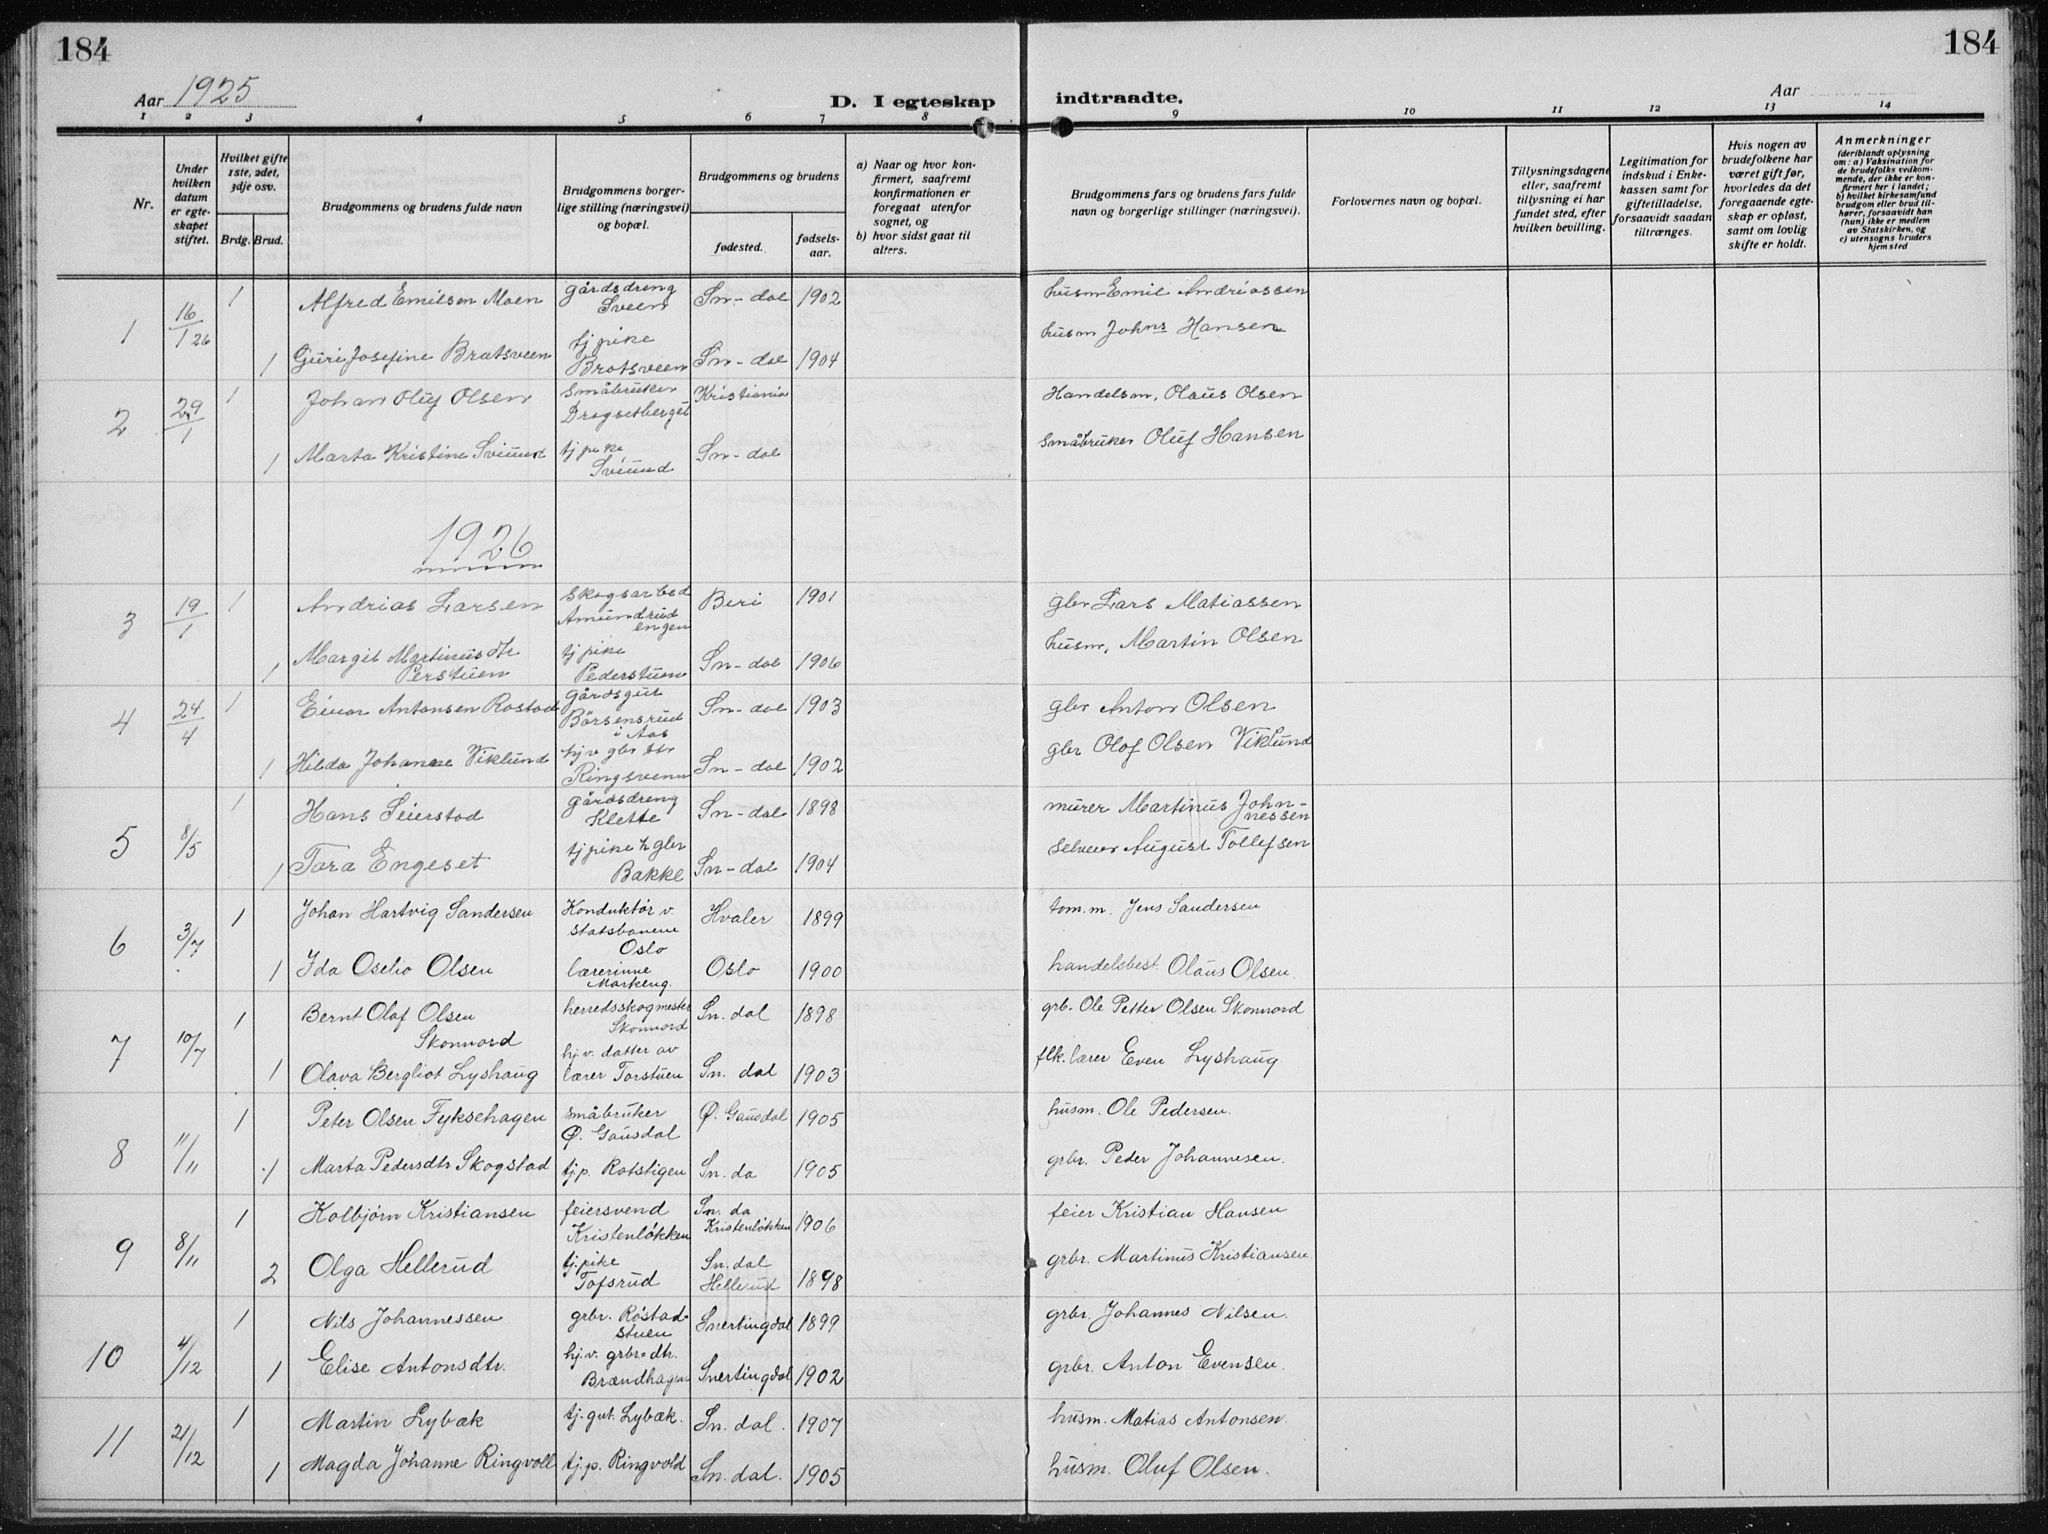 184
184
Aar 1925
D. I egteskap indtraadte.
Aar
1 2 3 4 5 6 7 8 9 10 11 12 13 14
Nr.
Under hvilken datum er egteskapet stiftet.
Hvilket gifte 1ste, 2det, 3dje osv.
Brdg. Brud.
Brudgommens og brudens fulde navn
Brudgommens borgerlige stilling (næringsvei) og bopæl.
Brudgommens og brudens
fødested.
fødselsaar.
a) Naar og hvor konfirmert, saafremt konfirmationen er foregaat utenfor sognet, og
b) hvor sidst gaat til alters.
Brudgommens fars og brudens fars fulde navn og borgerlige stillinger (næringsvei).
Forlovernes navn og bopæl.
Tillysningsdagene eller, saafremt tillysning ei har fundet sted, efter hvilken bevilling.
Legitimation for indskud i Enkekassen samt for giftetilladelse, forsaavidt saadan tiltrænges.
Hvis nogen av brudefolkene har været gift før, hvorledes da det foregaaende egteskap er opløst, samt om lovlig skifte er holdt.
Anmerkninger (deriblandt oplysning om: a) Vaksination for de brudefolks vedkommende, der ikke er konfirmert her i landet; b) hvilket kirkesamfund brudgom eller brud tilhører, forsaavidt han (hun) ikke er medlem av Statskirken, og c) utensogns bruders hjemsted
1 16/1 26 1 Alfred Emilsen Moen gårdsdreng Sveen Sn-dal 1902 husm Emil Andriassen
1 Guri Josefine Bratsveen tj pike Brotsveen Sn-dal 1904 husm Johns Hansen
2 29/1 1 Johan Oluf Olsen Småbruker Drogsetberget Kristiania Handelsm, Olaus Olsen
1 Marta Kristine Sviund tj pike Sviund Sn-dal småbruker Oluf Hansen
1926
3 19/1 1 Andrias Larsen Skogsarbed Amundrud engen Biri 1901 gbr Lars Matiassen
1 Margit Martinusdtr Perstuen tj pike Pederstuen Sn-dal 1906 husm, Martin Olsen
4 24/4 1 Einar Antonsen Rostad Gårdsgut Börsensrud i Aas Sn-dal 1903 gbr Anton Olsen
1 Hilda Johanne Viklund hjv gbr dtr Ringsvenn Sn-dal 1902 gbr Olof Olsen Viklund
5 8/5 1 Hans Seierstad gårdsdreng Klette Sn-dal 1898 murer Martinus Johnnessen
1 Tora Engeset tjpike h gbr Bakke Sn-dal 1904 selveier August Tollefsen
6 3/7 1 Johan Hartvig Sandersen Konduktør v. statsbanene Oslo Hvaler 1899 tom.m. Jens Sandersen
1 Ida Oselio Olsen lærerinne Markeng. Oslo 1900 handelsbest. Olaus Olsen.
7 10/7 1 Bernt Olaf Olsen Skonnord herredsskogmester Skonnord Sn. dal 1898 grb. Ole Petter Olsen Skonnord
1 Olava Bergliot Lyshaug hj.v. datter av lærer Torstuen Sn. dal 1903 flk. lærer Even Lyshaug
8 11/11 1 Peter Olsen Fyksehagen småbruker Ø. Gausdal Ø. Gausdal 1905 husm. Ole Pedersen.
1 Marta Pedersdtr Skogstad tj.p. Rotstigen Sn. da 1905 grbr. Peder Johannesen.
9 8/11 1 Kolbjørn Kristiansen feiersvend Kristenløkken Sn. da Kristenløkken 1906 feier Kristian Hansen
2 Olga Hellerud tj.pike Tofsrud Sn. dal Hellerud 1898 grbr. Martinus Kristiansen
10 4/12 1 Nils Johannessen grbr. Røstadstuen Snertingdal 1899 grbr. Johannes Nilsen.
1 Elise Antonsdtr. hj.v. grbr. dtr. Brændhagen Snertingdal 1902 grbr. Anton Evensen.
11 21/12 1 Martin Lybæk tj. gut. Lybæk. Sn. dal. 1907 husm. Matias Antonsen.
1 Magda Johanne Ringvoll tj.p. Ringvold Sn. dal. 1905 husm. Oluf Olsen.